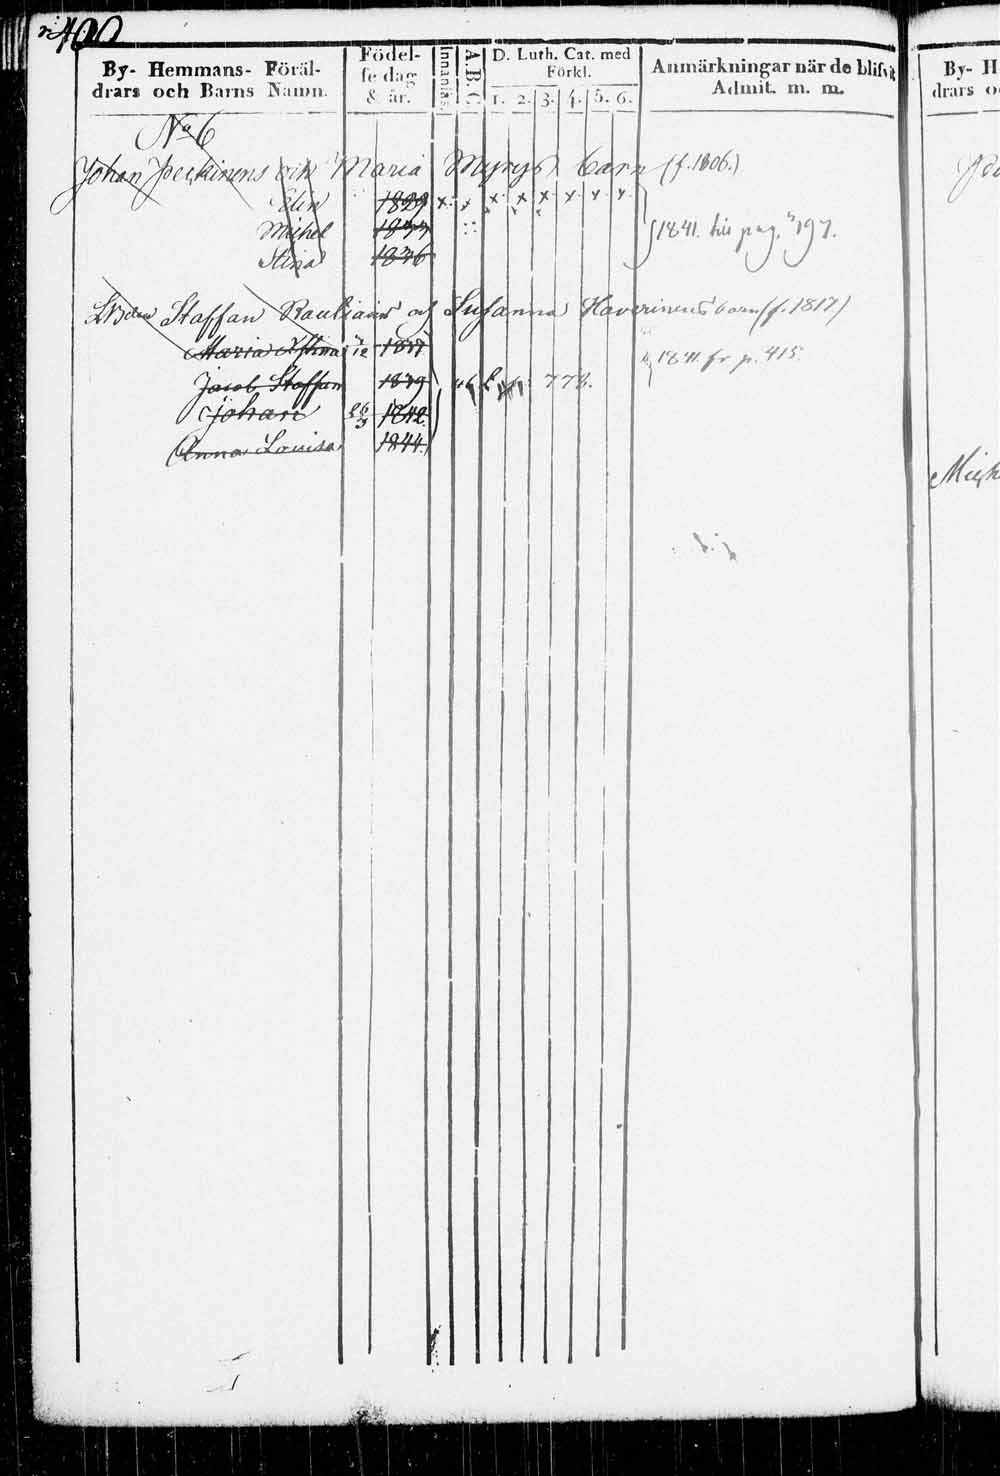 400
By- Hemmans- Föräl-
drars och Barns Namn.
Födel-
se dag
& år.
Innanläs.
A.B.C.
D. Luth. Cat. med
Förkl.
1. 2. 3. 4. 5. 6.
Anmärkningar när de blifvit
Admit. m. m.
No 6
Johan Peckinens och Maria Myrys barn (f. 1806.)
Elin 1829 x x x x x x x x
Michel
Stina 1836
1841. till pag. 197.
Staffan Rautiains och Susanna Haverinens barn (f. 1817)
Maria 12 1837
1841 fr p. 415.
Jacob Staffan 1839
Johan 26 1842
Anna Lovisa 1844.
By- H
drars o